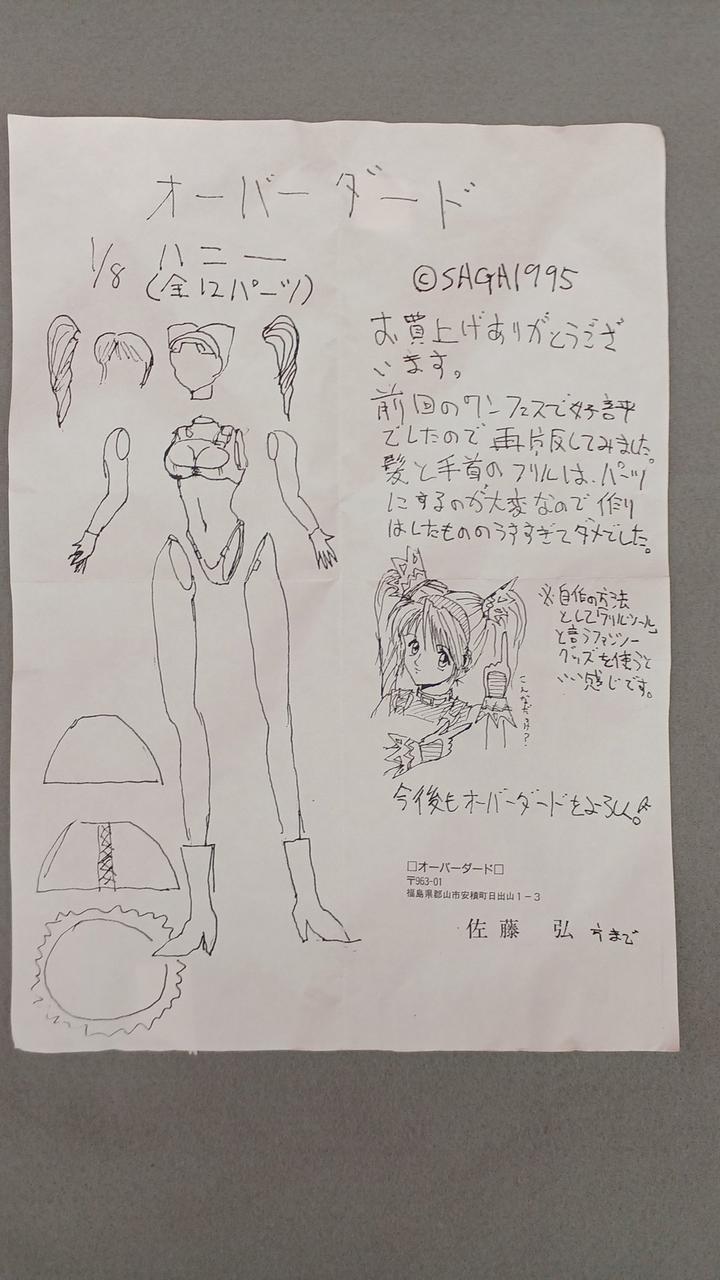 オーバーダード
1/8 ハニー
(全12パーツ)
©SAGA1995
お買上げありがとうござ
います。
前回のワンフェスで好評
でしたので再販してみました。
髪と手首のフリルは、パーツ
にするのが大変なので作り
はしたもののうすすぎてダメでした。
※自作の方法
として「フリルシール」
と言うファンシー
グッズを使うと
いい感じです。
こんなだっけ?
今後もオーバーダードをよろしく。
□オーバーダード□
〒963-01
福島県郡山市安積町日出山1-3
佐藤 弘 方まで